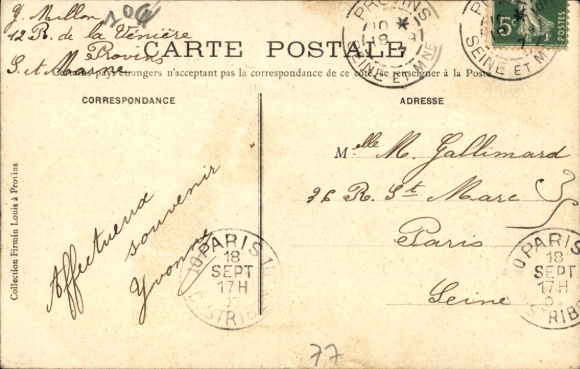 Y. Mullon
104
12 R. de la Venière
Provins
S. et Marne
CARTE POSTALE
PROVINS
SEINE ET MNE
7
5c
POSTES
SEINE ET MNE
7
Certains pays étrangers n'acceptent pas la correspondance de ce côté, se renseigner à la Poste
CORRESPONDANCE
ADRESSE
Affectueux
souvenir
Yvonne
Melle M. Gallimard
36 R. St Marc
Paris
Seine
PARIS
18
SEPT
17H
DISTRIB
PARIS
18
SEPT
17H
DISTRIB
Collection Firmin Louis à Provins
77